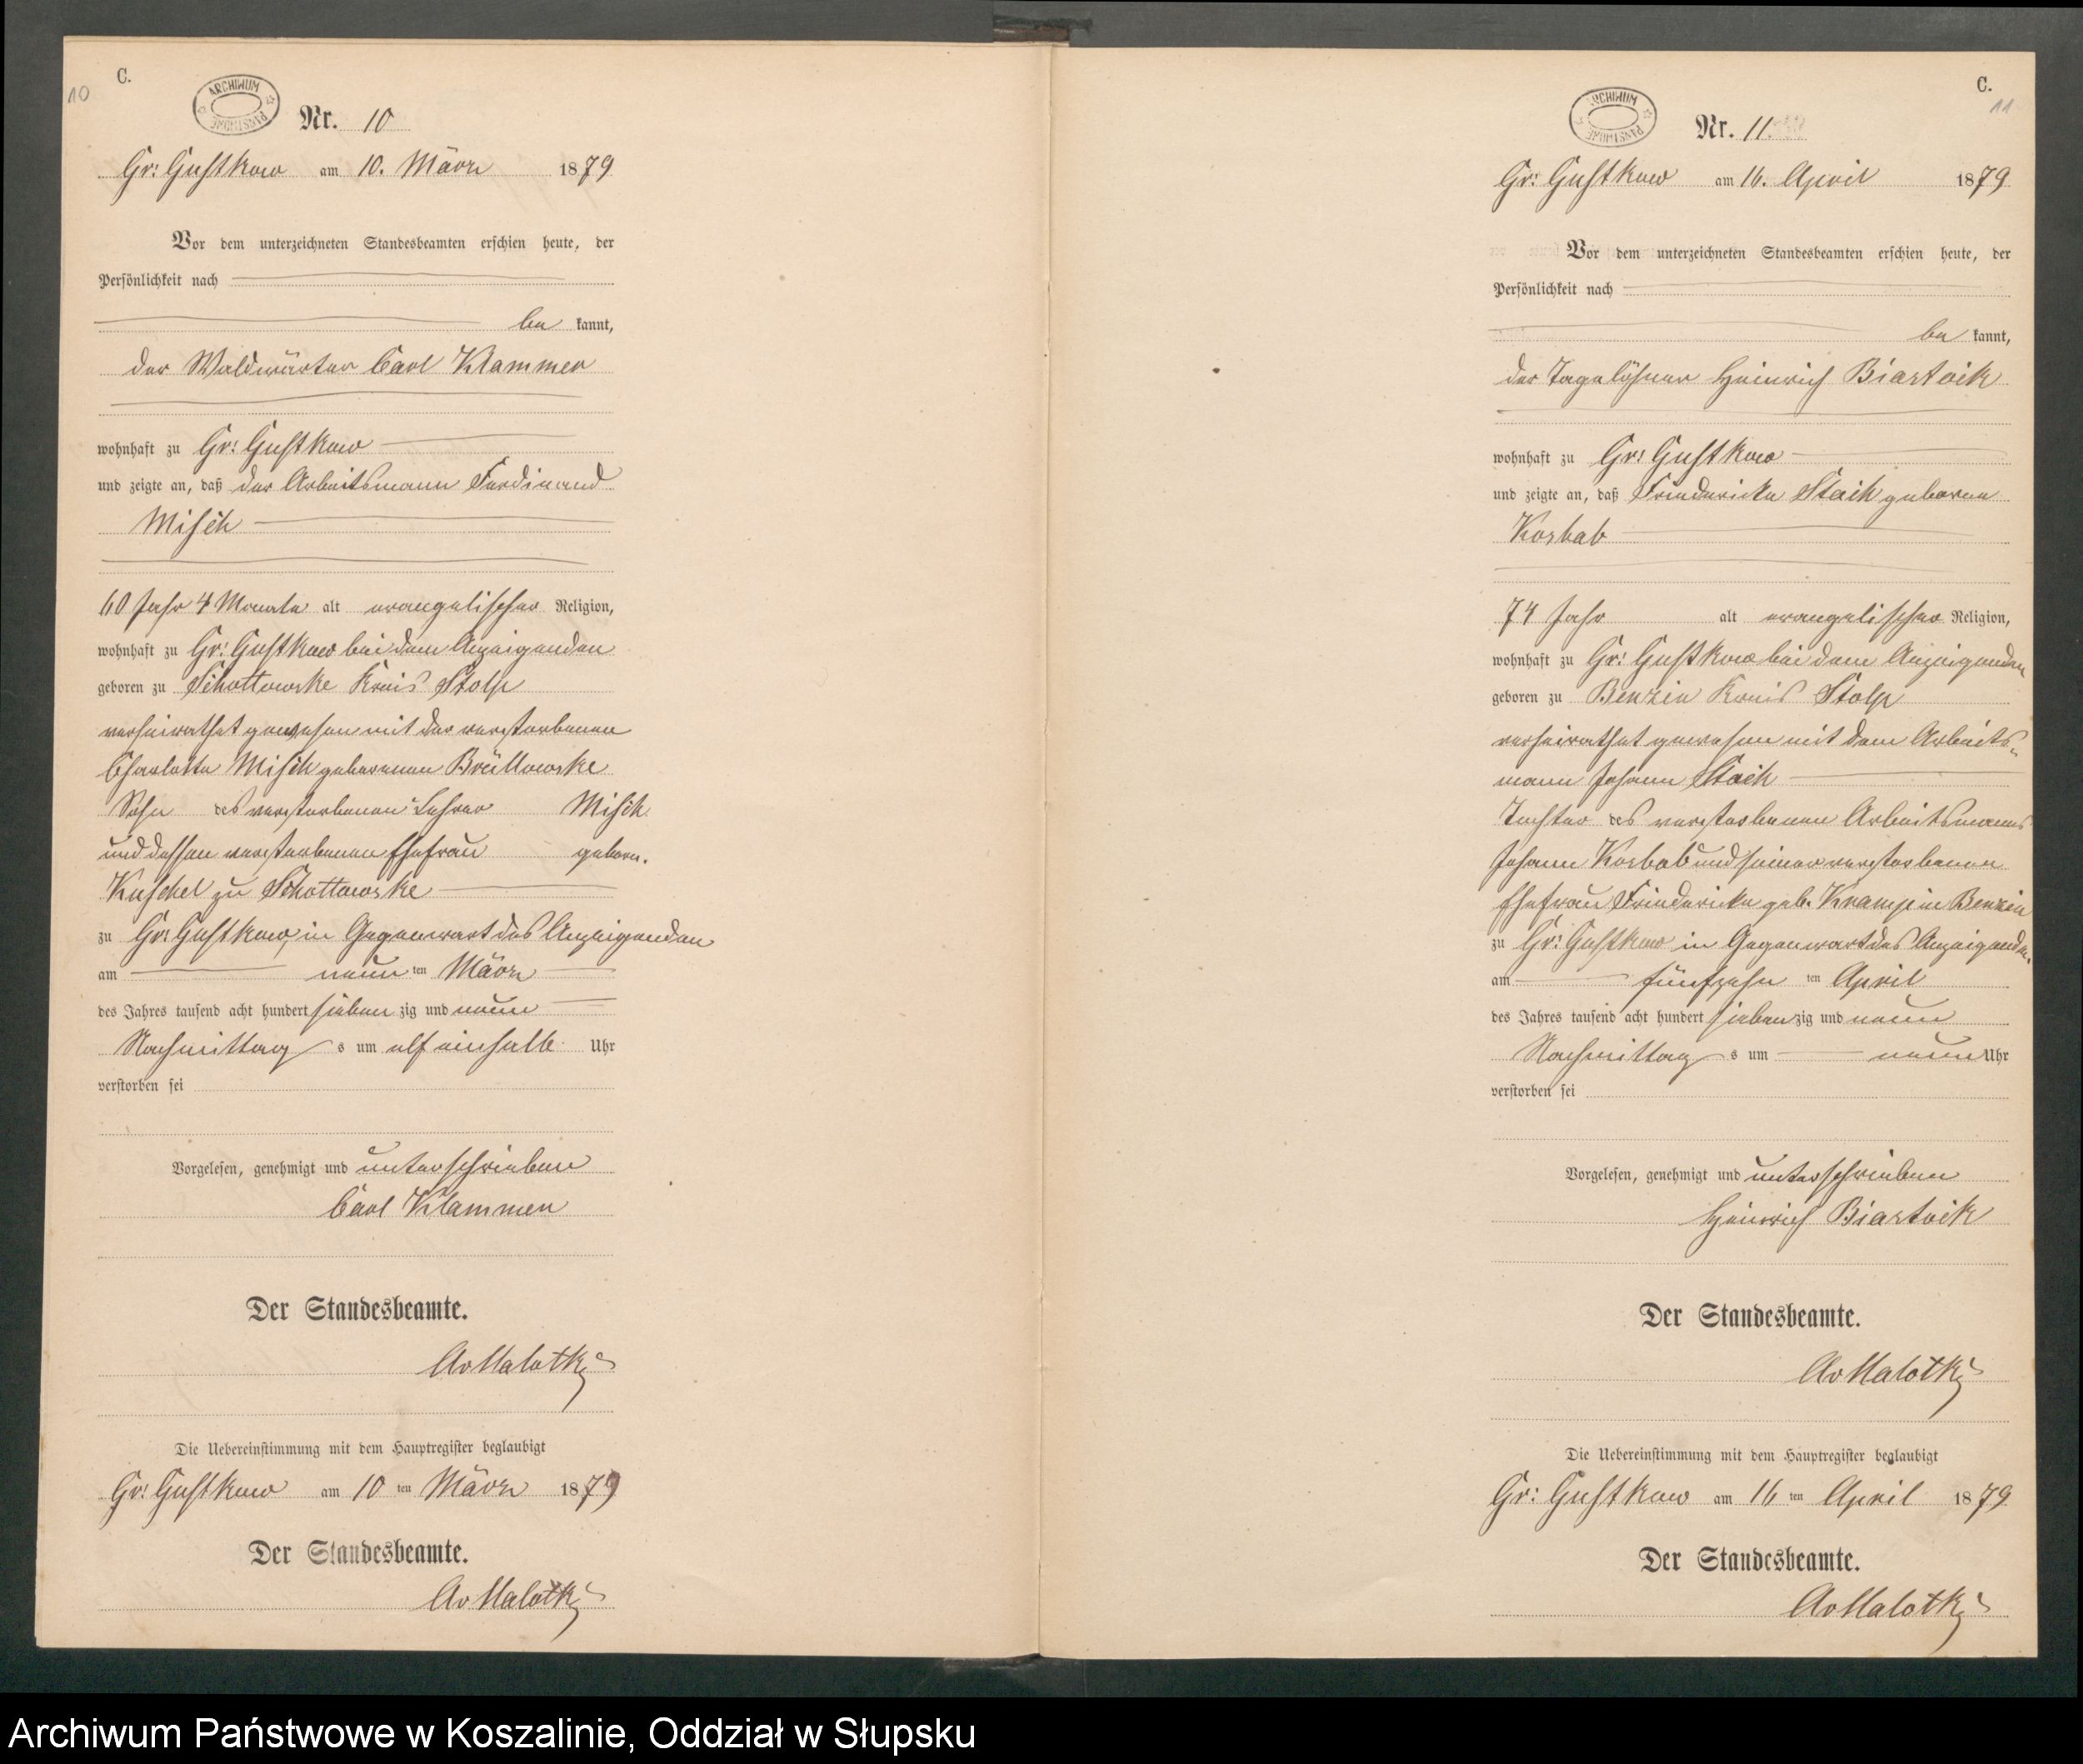 C.
10
ARCHIWUM PAŃSTWOWE
Nr. 10
Gr: Gustkow am 10. März 1879
Vor dem unterzeichneten Standesbeamten erschien heute, der
Persönlichkeit nach
be kannt,
der Waldwärter Carl Klammer
wohnhaft zu Gr: Gustkow
und zeigte an, daß der Arbeitsmann Ferdinand
Misch
60 Jahr 4 Monate alt evangelischer Religion,
wohnhaft zu Gr: Gustkow bei dem Anzeigenden
geboren zu Schottowske Kreis Stolp
verheirathet gewesen mit der verstorbenen
Charlotte Misch geborenen Brüllowske
Sohn des verstorbenen Lehrer Misch
und dessen verstorbenen Ehefrau geborn.
Kuschel zu Schottowske
zu Gr: Gustkow, in Gegenwart des Anzeigenden
am neun ten März
des Jahres tausend acht hundert sieben zig und neun
Nachmittag s um elf einhalb Uhr
verstorben sei
Vorgelesen, genehmigt und unterschrieben
Carl Klammer
Der Standesbeamte.
AvMalotky
Die Uebereinstimmung mit dem Hauptregister beglaubigt
Gr: Gustkow am 10 ten März 1879
Der Standesbeamte.
AvMalotky
C.
11
ARCHIWUM PAŃSTWOWE
Nr. 11.
Gr: Gustkow am 16. April 1879
Vor dem unterzeichneten Standesbeamten erschien heute, der
Persönlichkeit nach
be kannt,
der Tagelöhner Heinrich Biastoik
wohnhaft zu Gr: Gustkow
und zeigte an, daß Friedericke Stoik geborene
Kosbab
74 Jahr alt evangelischer Religion,
wohnhaft zu Gr: Gustkow bei dem Anzeigenden
geboren zu Benzin Kreis Stolp
verheirathet gewesen mit dem Arbeits-
mann Johann Stoik
Tochter des verstorbenen Arbeitsmanns
Johann Kosbab und seiner verstorbenen
Ehefrau Friedericke geb. Kramp in Benzin
zu Gr: Gustkow in Gegenwart des Anzeigenden.
am fünfzehn ten April
des Jahres tausend acht hundert sieben zig und neun
Nachmittag s um neun Uhr
verstorben sei
Vorgelesen, genehmigt und unterschrieben
Heinrich Biastoik
Der Standesbeamte.
AvMalotky
Die Uebereinstimmung mit dem Hauptregister beglaubigt
Gr: Gustkow am 16 ten April 1879
Der Standesbeamte.
AvMalotky
Archiwum Państwowe w Koszalinie, Oddział w Słupsku